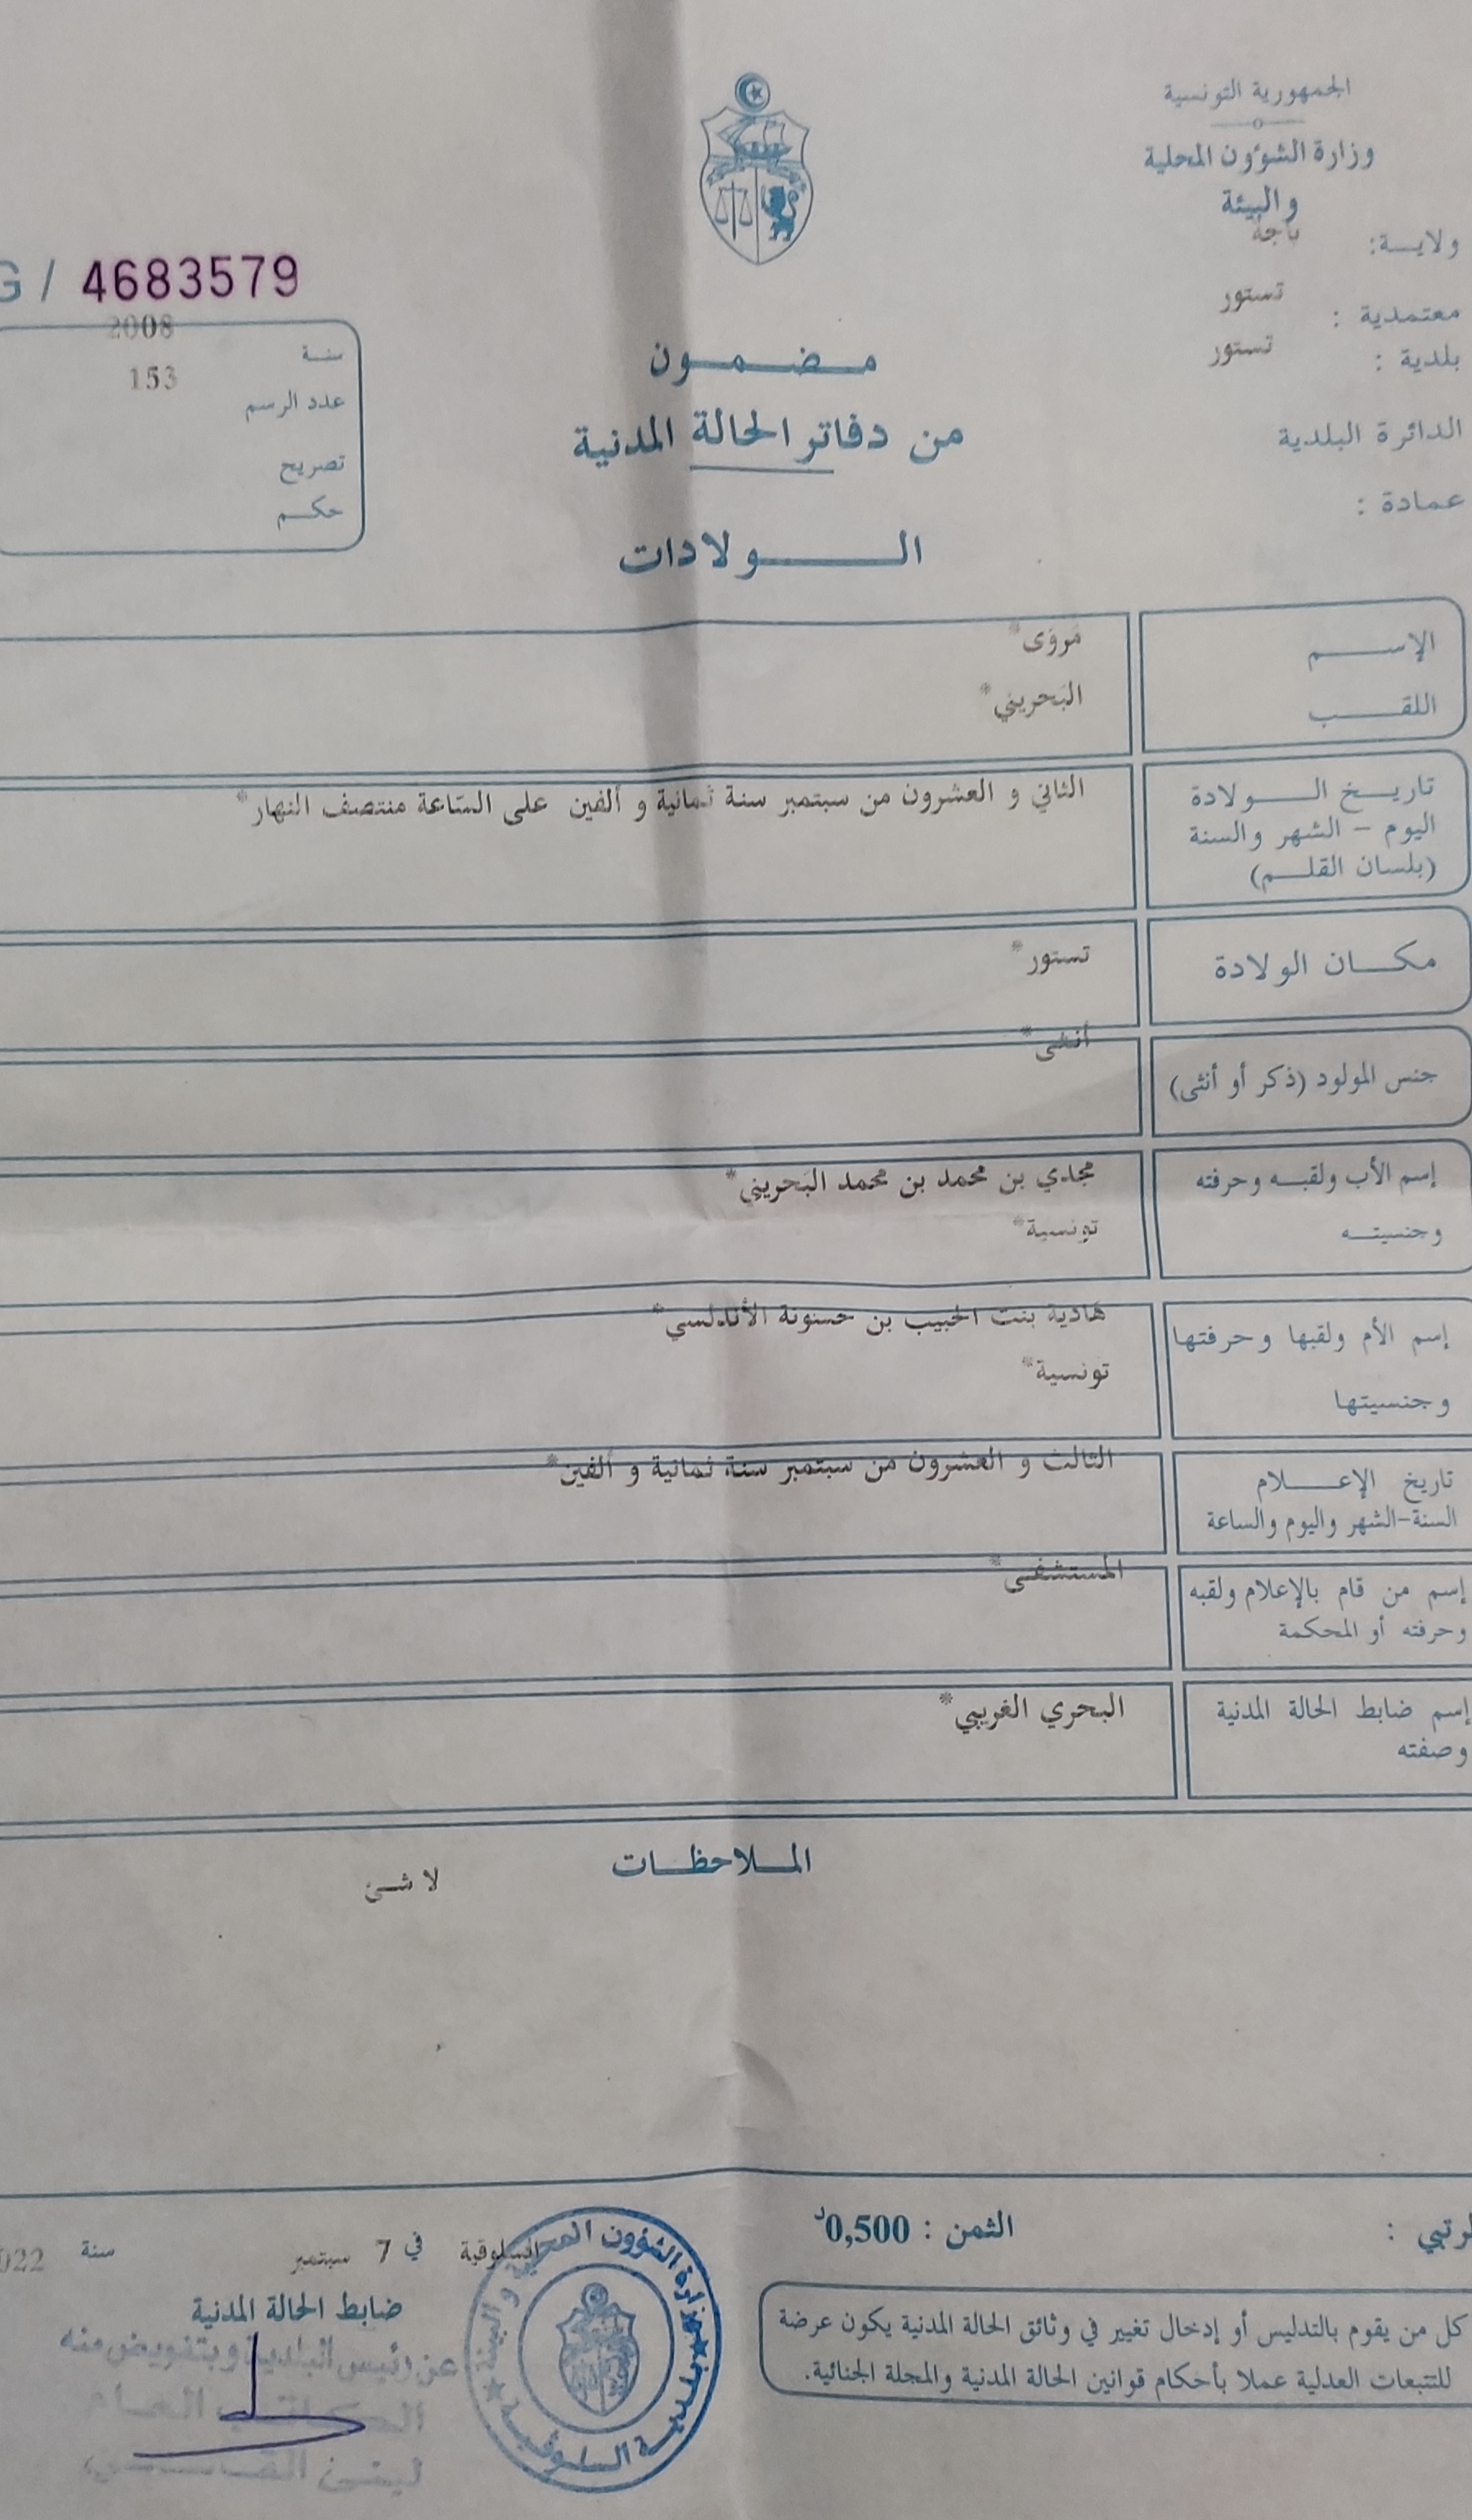 الجمهورية التونسية
وزارة الشؤون المحلية
والبيئة
ولايـــة: باجة
معتمدية : تستور
بلدية : تستور
الدائرة البلدية
عمادة :
G / 4683579
سنــة 2008
عدد الرسم 153
تصريح
حكــم
مـضـمـون
من دفاتر الحالة المدنية
الـــولادات
الإســـم مَروَى*
اللقـــب البَحريني*
تاريـخ الـــولادة الثاني و العشرون من سبتمبر سنة ثمانية و ألفين على السّاعة منتصف النهار*
اليوم - الشهر والسنة
(بلسان القلـــم)
مكـــان الولادة تستور*
جنس المولود (ذكر أو أنثى) أنثى*
إسم الأب ولقبــه وحرفته مجدي بن محمد بن محمد البَحريني*
وجنسيتــه تونسية*
إسم الأم ولقبها وحرفتها هَادية بنت الحبيب بن حسونة الأندلسي*
وجنسيتها تونسية*
تاريخ الإعـــلام الثالث و العشرون من سبتمبر سنة ثمانية و ألفين*
السنة-الشهر واليوم والساعة
إسم من قام بالإعلام ولقبه المستشفى*
وحرفته أو المحكمة
إسم ضابط الحالة المدنية البحري الغريبي*
وصفته
الملاحظـــات
لا شئ
الثمن : 0,500د
كل من يقوم بالتدليس أو إدخال تغيير في وثائق الحالة المدنية يكون عرضة
للتتبعات العدلية عملا بأحكام قوانين الحالة المدنية والمجلة الجنائية.
السلوقية في 7 سبتمبر سنة 022
ضابط الحالة المدنية
عن رئيس البلدية وبتفويض منه
وزارة الشؤون المحلية والبيئة
بلديــة السلوقيــة